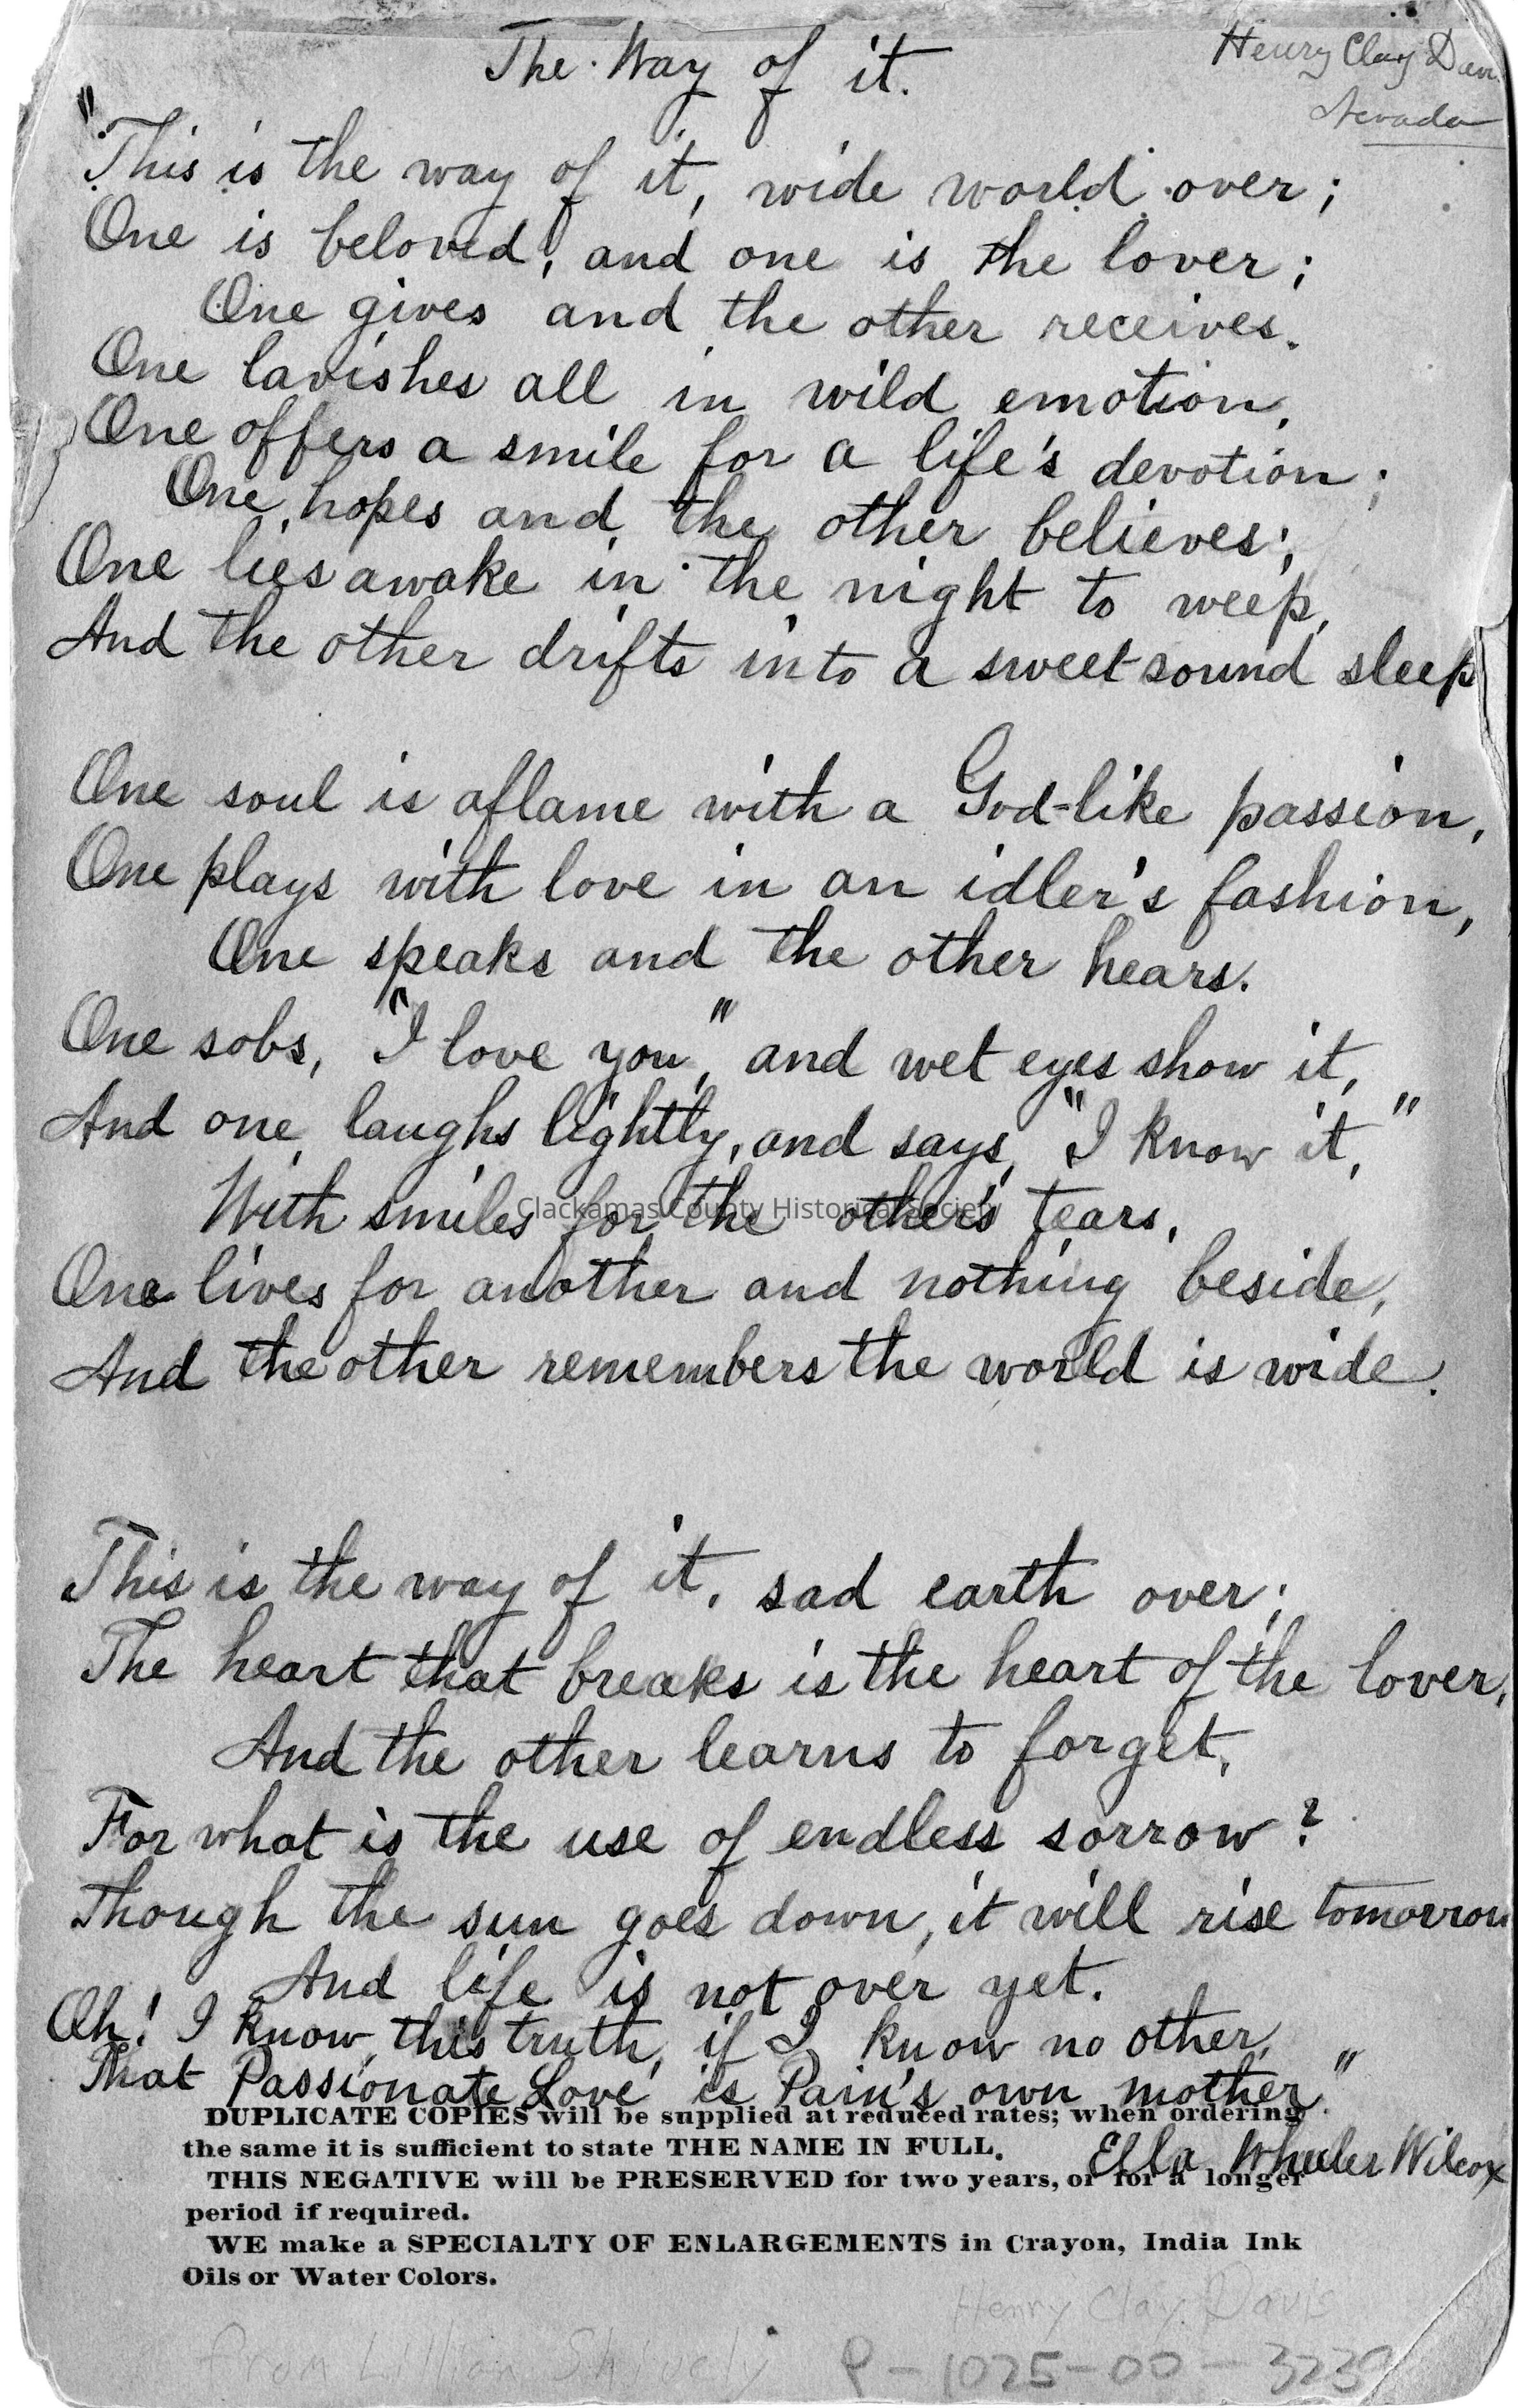 The Way of it.
Henry Clay Davi
Nevada
"This is the way of it, wide world over;
One is beloved, and one is the lover;
One gives and the other receives.
One lavishes all in wild emotion,
One offers a smile for a life's devotion;
One hopes and the other believes;
One lies awake in the night to weep,
And the other drifts into a sweet sound sleep
One soul is aflame with a God-like passion,
One plays with love in an idler's fashion,
One speaks and the other hears.
One sobs, "I love you," and wet eyes show it,
And one laughs lightly, and says, "I know it,"
With smiles for the other's tears.
Clackamas County Historical Society
One lives for another and nothing beside,
And the other remembers the world is wide.
This is the way of it, sad earth over;
The heart that breaks is the heart of the lover,
And the other learns to forget,
For what is the use of endless sorrow?
Though the sun goes down, it will rise tomorrow
And life is not over yet.
Oh! I know this truth, if I know no other,
That Passionate Love is Pain's own mother."
DUPLICATE COPIES will be supplied at reduced rates; when ordering
the same it is sufficient to state THE NAME IN FULL.
Ella Wheeler Wilcox
THIS NEGATIVE will be PRESERVED for two years, or for a longer
period if required.
WE make a SPECIALTY OF ENLARGEMENTS in Crayon, India Ink
Oils or Water Colors.
Henry Clay Davis
from Lillian Shively
P-1025-00-3239